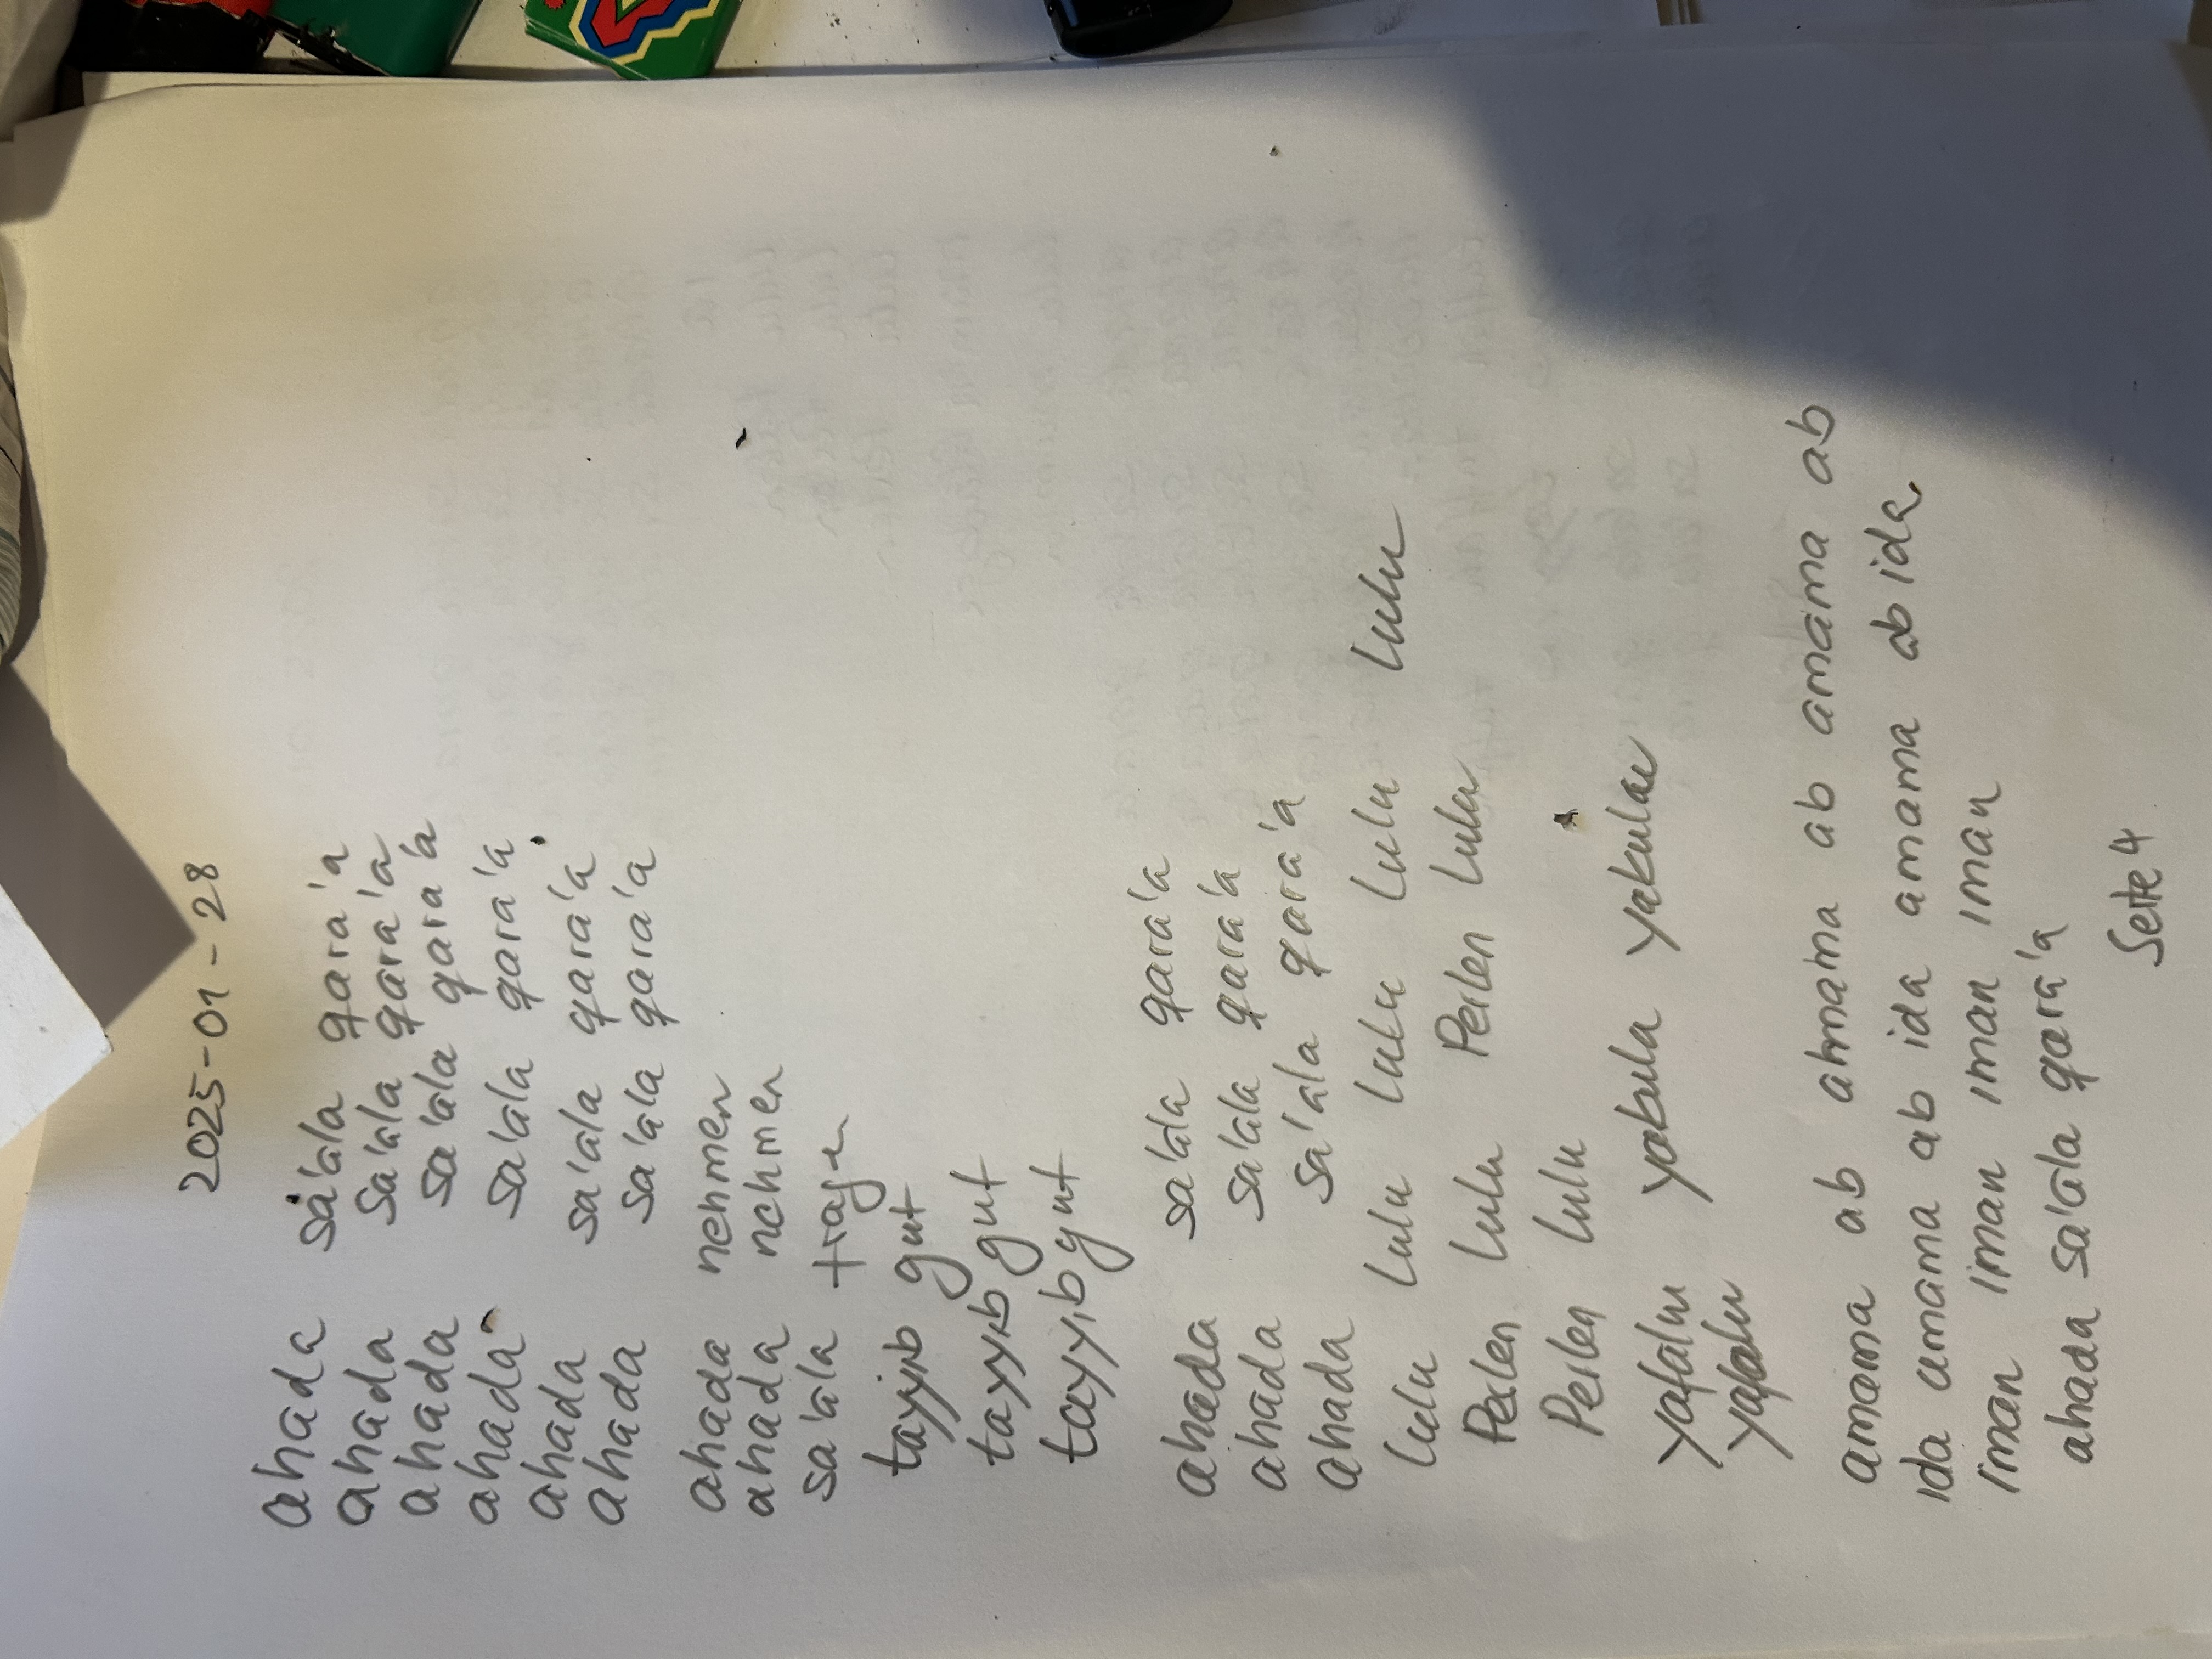 2025-01-28
ahada sa'ala qara'a
ahada sa'ala qara'a
ahada sa'ala qara'a
ahada sa'ala qara'a
ahada sa'ala qara'a
ahada sa'ala qara'a
ahada nehmen
ahada nehmen
sa'ala fragen
tayyib gut
tayyib gut
tayyib gut
ahada sa'ala qara'a
ahada sa'ala qara'a
ahada sa'ala qara'a
lulu lulu lulu lulu lulu
Perlen lulu Perlen lulu
Perlen lulu
yafalu yakula yakulau
yafalu
amama ab amama ab amama ab
ida amama ab ida amama ab ida
iman iman iman iman
ahada sa'ala qara'a
Seite 4